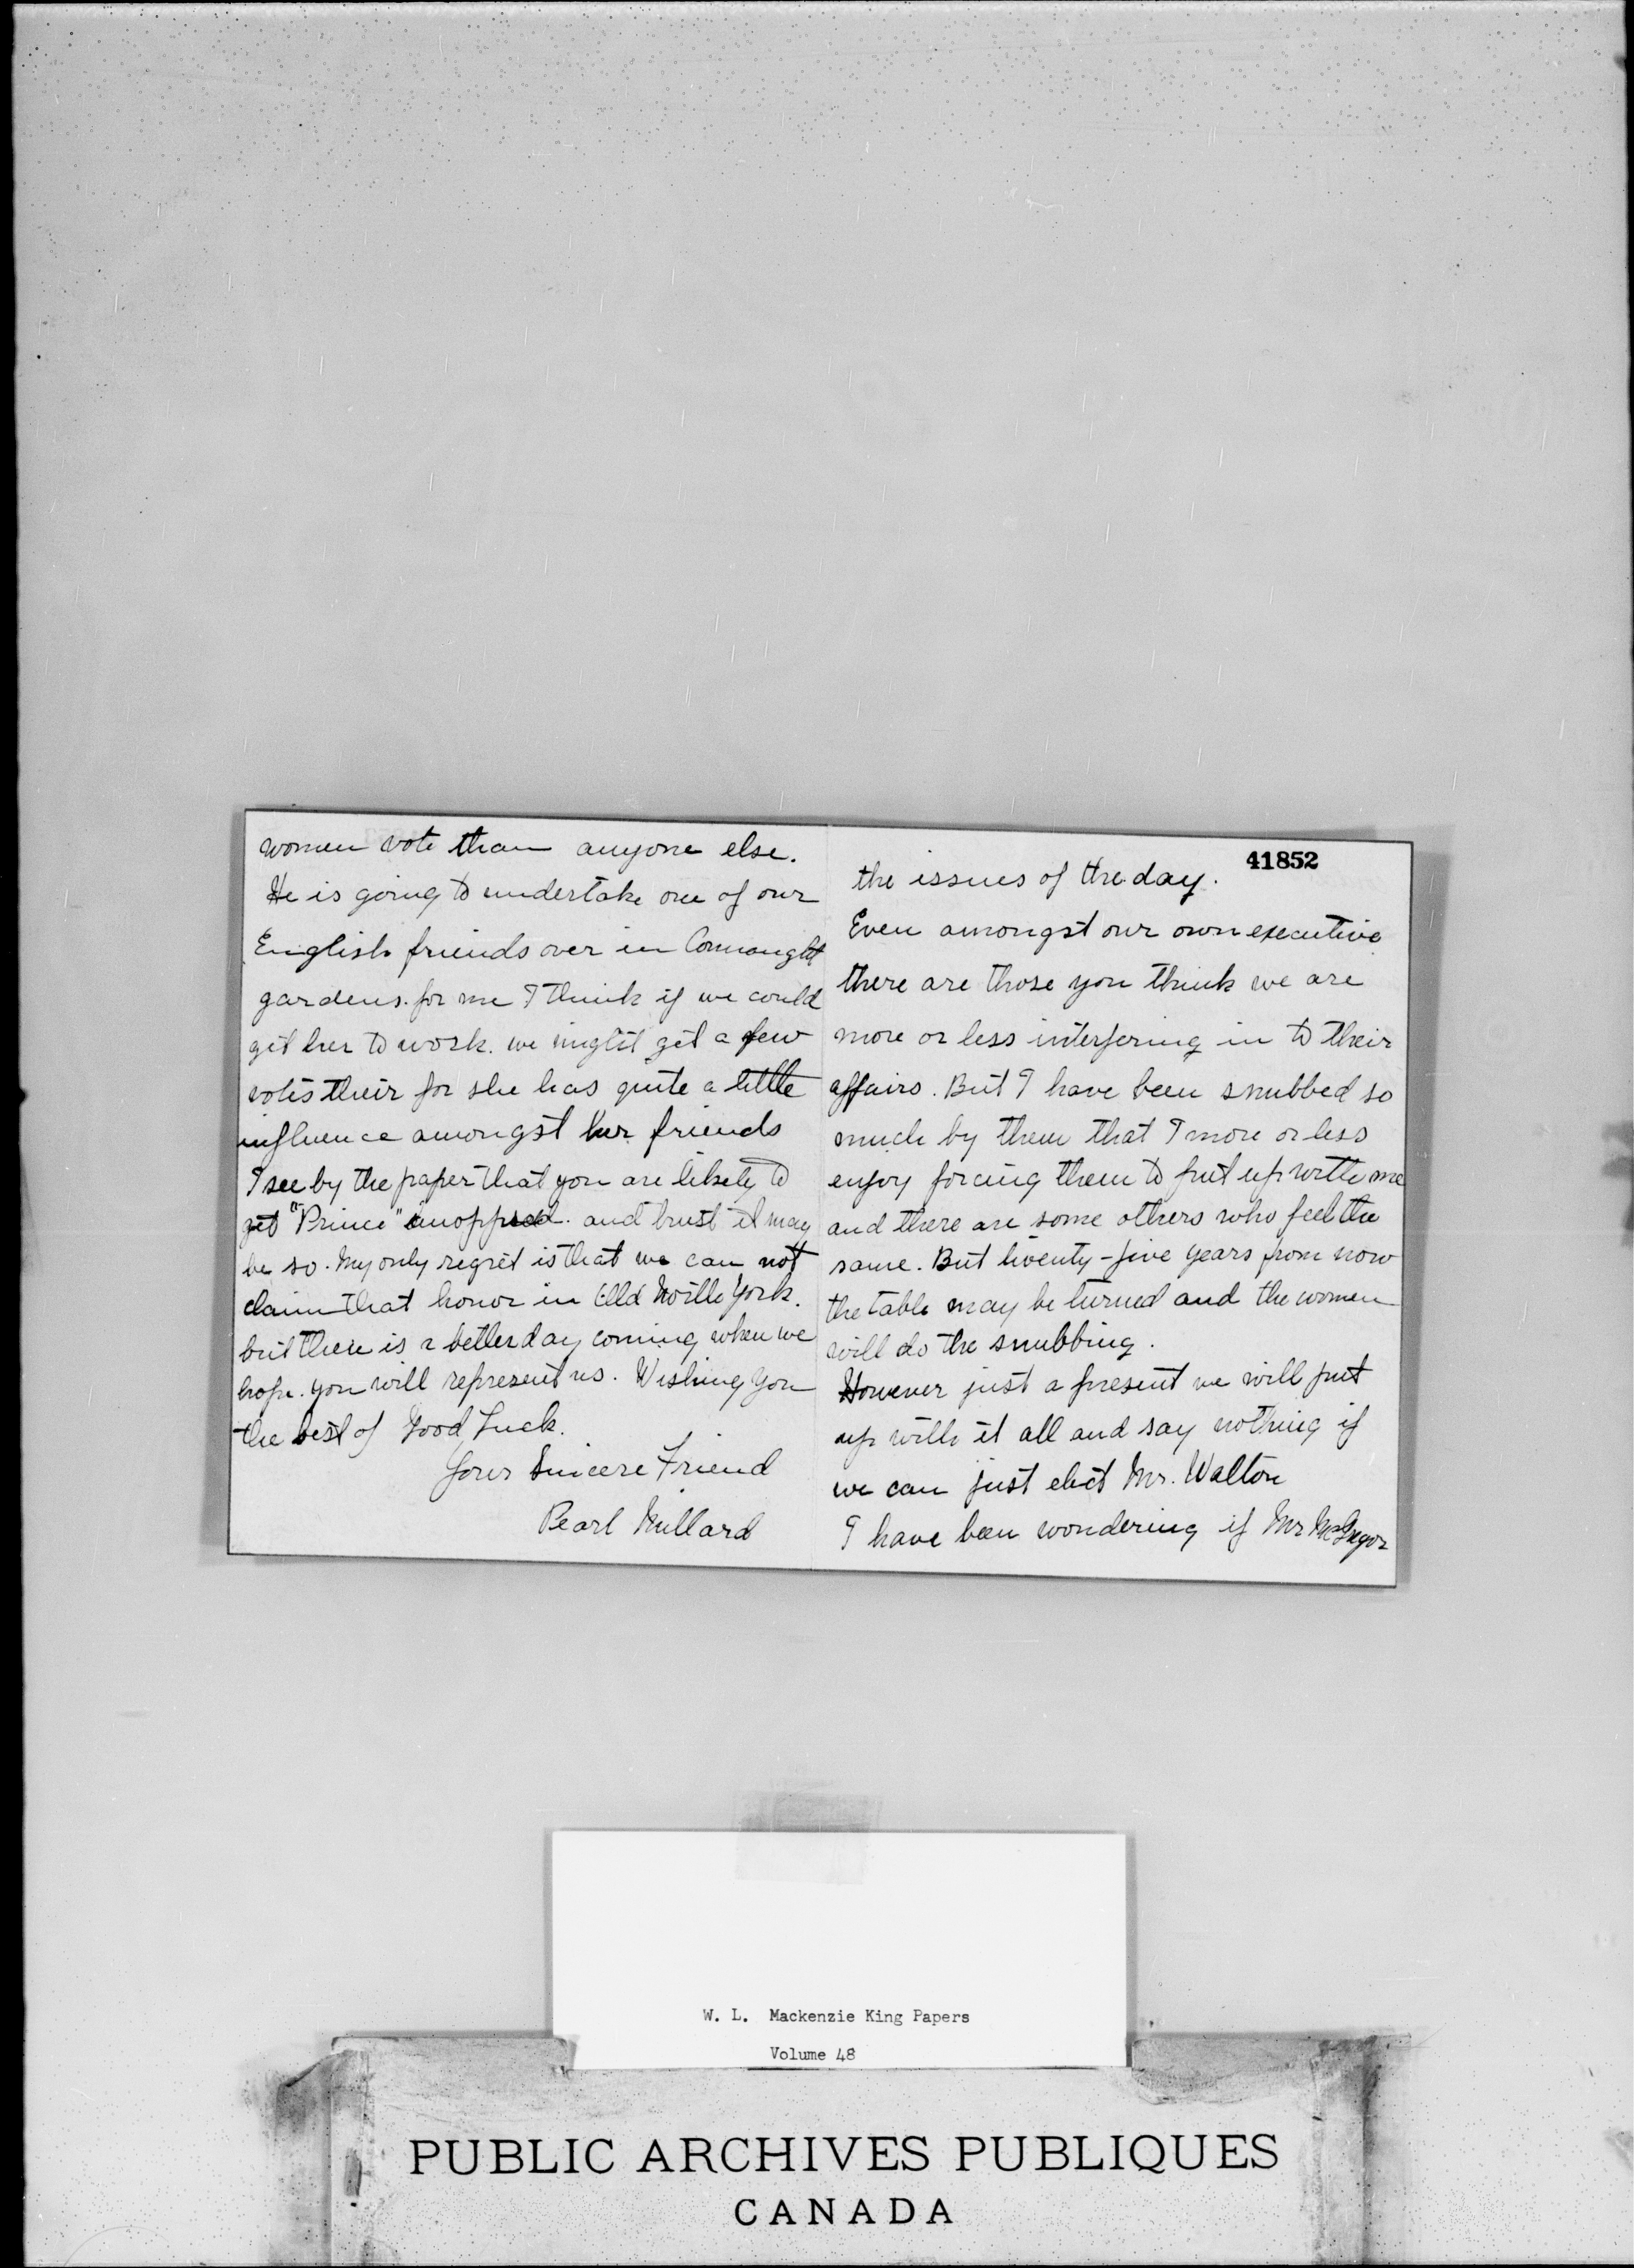 women vote than anyone else.
He is going to undertake one of our
English friends over in Connaught
gardens. for me I think if we could
get her to work. we might get a few
votes their for she has quite a little
influence amongst her friends
I see by the paper that you are likely to
get "Prince" unopposed. and trust it may
be so. My only regret is that we can not
claim that honor in Old North York.
but there is a better day coming when we
hope. you will represent us. Wishing you
the best of Good Luck.
Your Sincere Friend
Pearl Millard
41852
the issues of the day.
Even amongst our own executive
there are those you think we are
more or less interfering in to their
affairs. But I have been snubbed so
much by them that I more or less
enjoy forcing them to put up with me
and there are some others who feel the
same. But twenty-five years from now
the table may be turned and the women
will do the snubbing.
However just a present we will put
up with it all and say nothing if
we can just elect Mr. Walton
I have been wondering if Mr McGregor
W. L. Mackenzie King Papers
Volume 48
PUBLIC ARCHIVES PUBLIQUES
CANADA